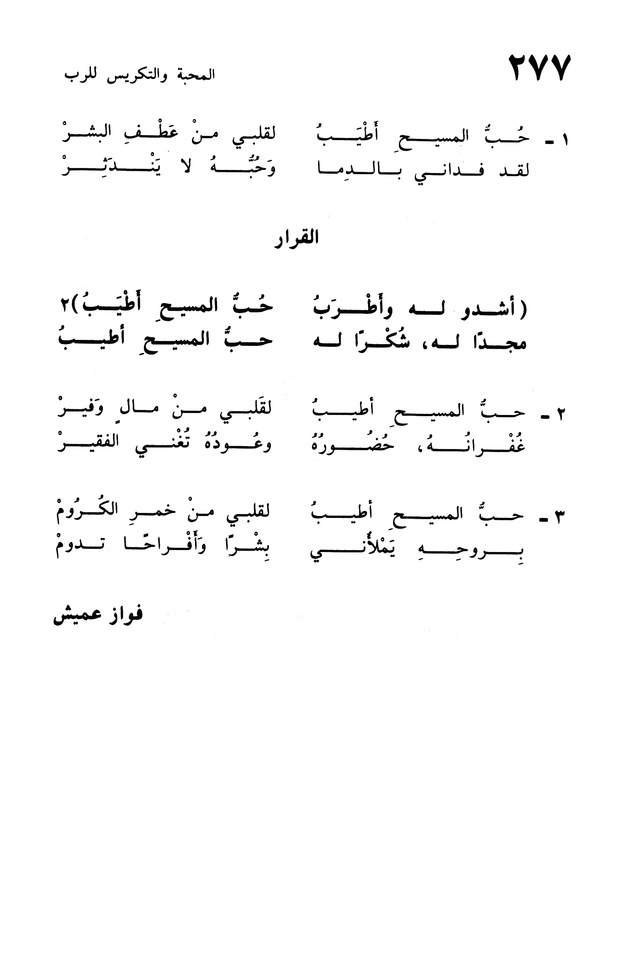 ٢٧٧
المحبة والتكريس للرب
١ - حُبُّ المسيحِ أَطْيَبُ لقلبي منْ عَطْفِ البشرْ
لقد فداني بالدِما وَحُبُّهُ لا يَنْدَثِرْ
القرار
(أشدو له وأَطْرَبُ حُبُّ المسيحِ أَطْيَبُ)٢
مجدًا له، شُكْرًا له حبُّ المسيحِ أطيبُ
٢ - حبُّ المسيحِ أطيبُ لقَلبي منْ مالٍ وَفيرْ
غُفْرانُهُ، حُضُورُهُ وعُودُهُ تُغْني الفقيرْ
٣ - حبُّ المسيحِ أطيبُ لقلبي منْ خمرِ الكُرُومْ
بِروحِهِ يَمْلأَني بِشْرًا وَأَفْراحًا تدومْ
فواز عميش